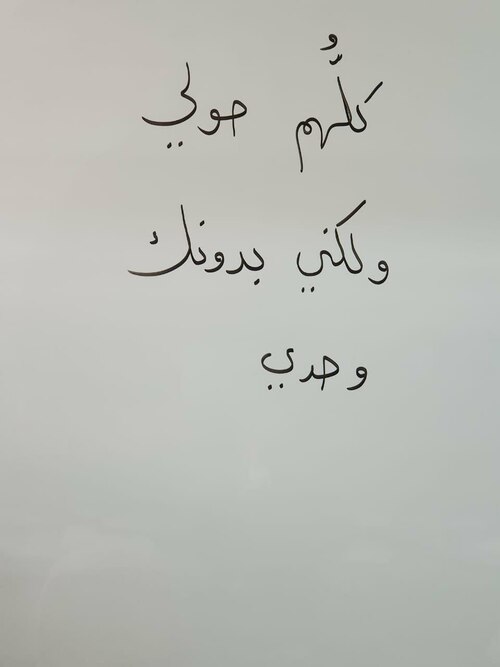 كلُّهم حولي
ولكني بدونك
وحدي